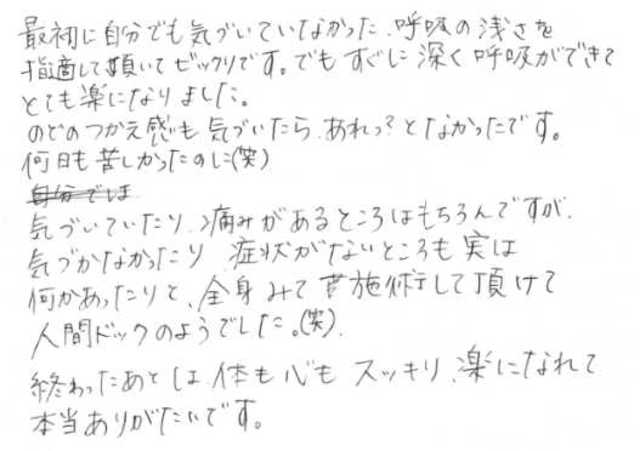 最初に自分でも気づいていなかった、呼吸の浅さを
指適して頂いてビックリです。でもすぐに深く呼吸ができて
とても楽になりました。
のどのつかえ感も気づいたら、あれっ?となかったです。
何日も苦しかったのに(笑)
自分では
気づいていたり、痛みがあるところはもちろんですが、
気づかなかったり、症状がないところも実は
何かあったりと、全身みて施術して頂けて
人間ドックのようでした。(笑)
終わったあとは、体も心もスッキリ、楽になれて
本当ありがたいです。